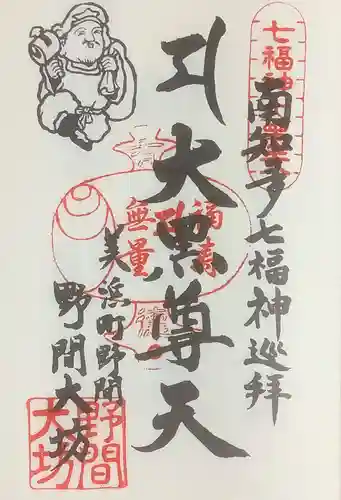 七福神
南知多七福神巡拝
大黒尊天
福寿
無量
美浜町野間
野間大坊
野間
大坊